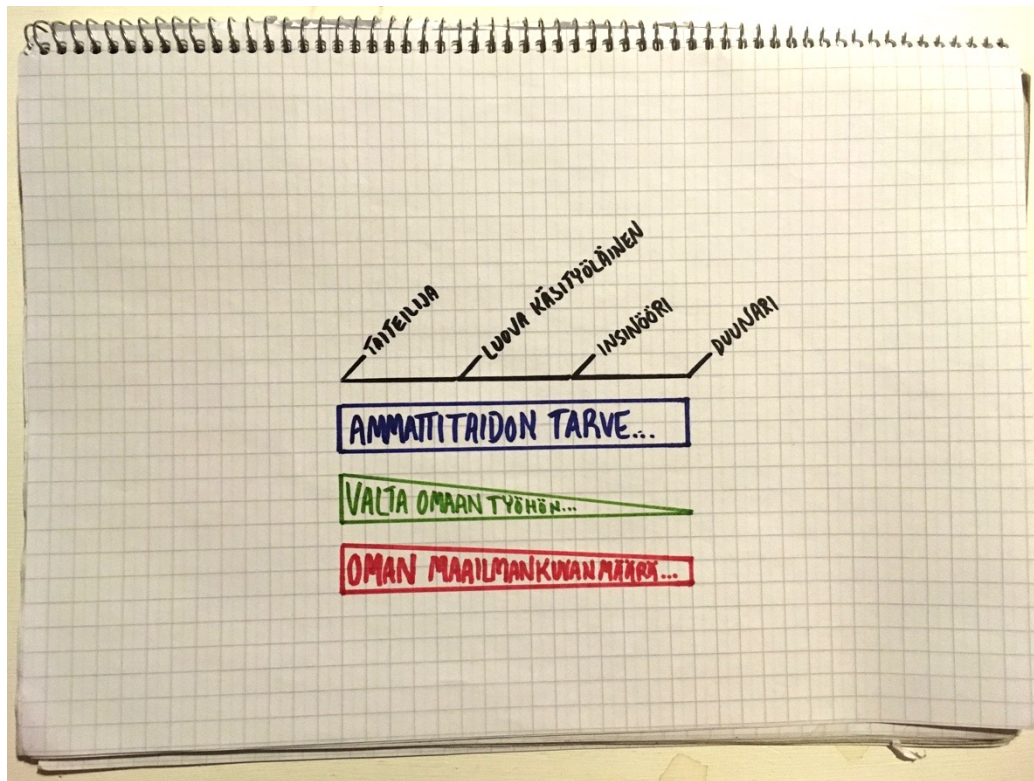 TAITEILIJA
LUOVA KÄSITYÖLÄINEN
INSINÖÖRI
DUUNARI
AMMATTITAIDON TARVE...
VALTA OMAAN TYÖHÖN...
OMAN MAAILMANKUVAN MÄÄRÄ...